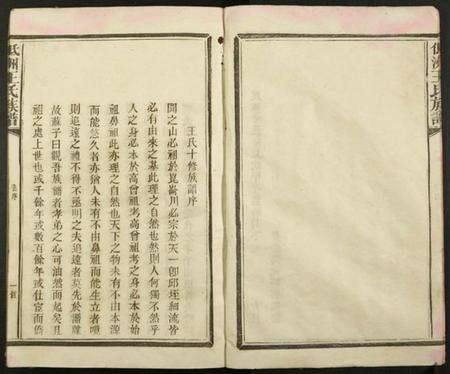 王氏十修族譜序
聞之山必祖於崑崙川必宗於天一卽邱垤細流皆
必有由來之基此理之自然也然則人何獨不然乎
人之身必本於高曾祖考高曾祖考之身必本於始
祖鼻祖此亦理之自然也天下之物未有不由本源
而能悠久者亦猶人未有不由鼻祖而能生立者噫
則追遠之禮不得不亟明之夫追遠者莫先於譜
故蘇子曰觀吾族譜者孝弟之心可油然而起矣且
祖之處上世也或千餘年或數百餘年或仕宦而
王氏族譜
序
一
洲王氏族譜